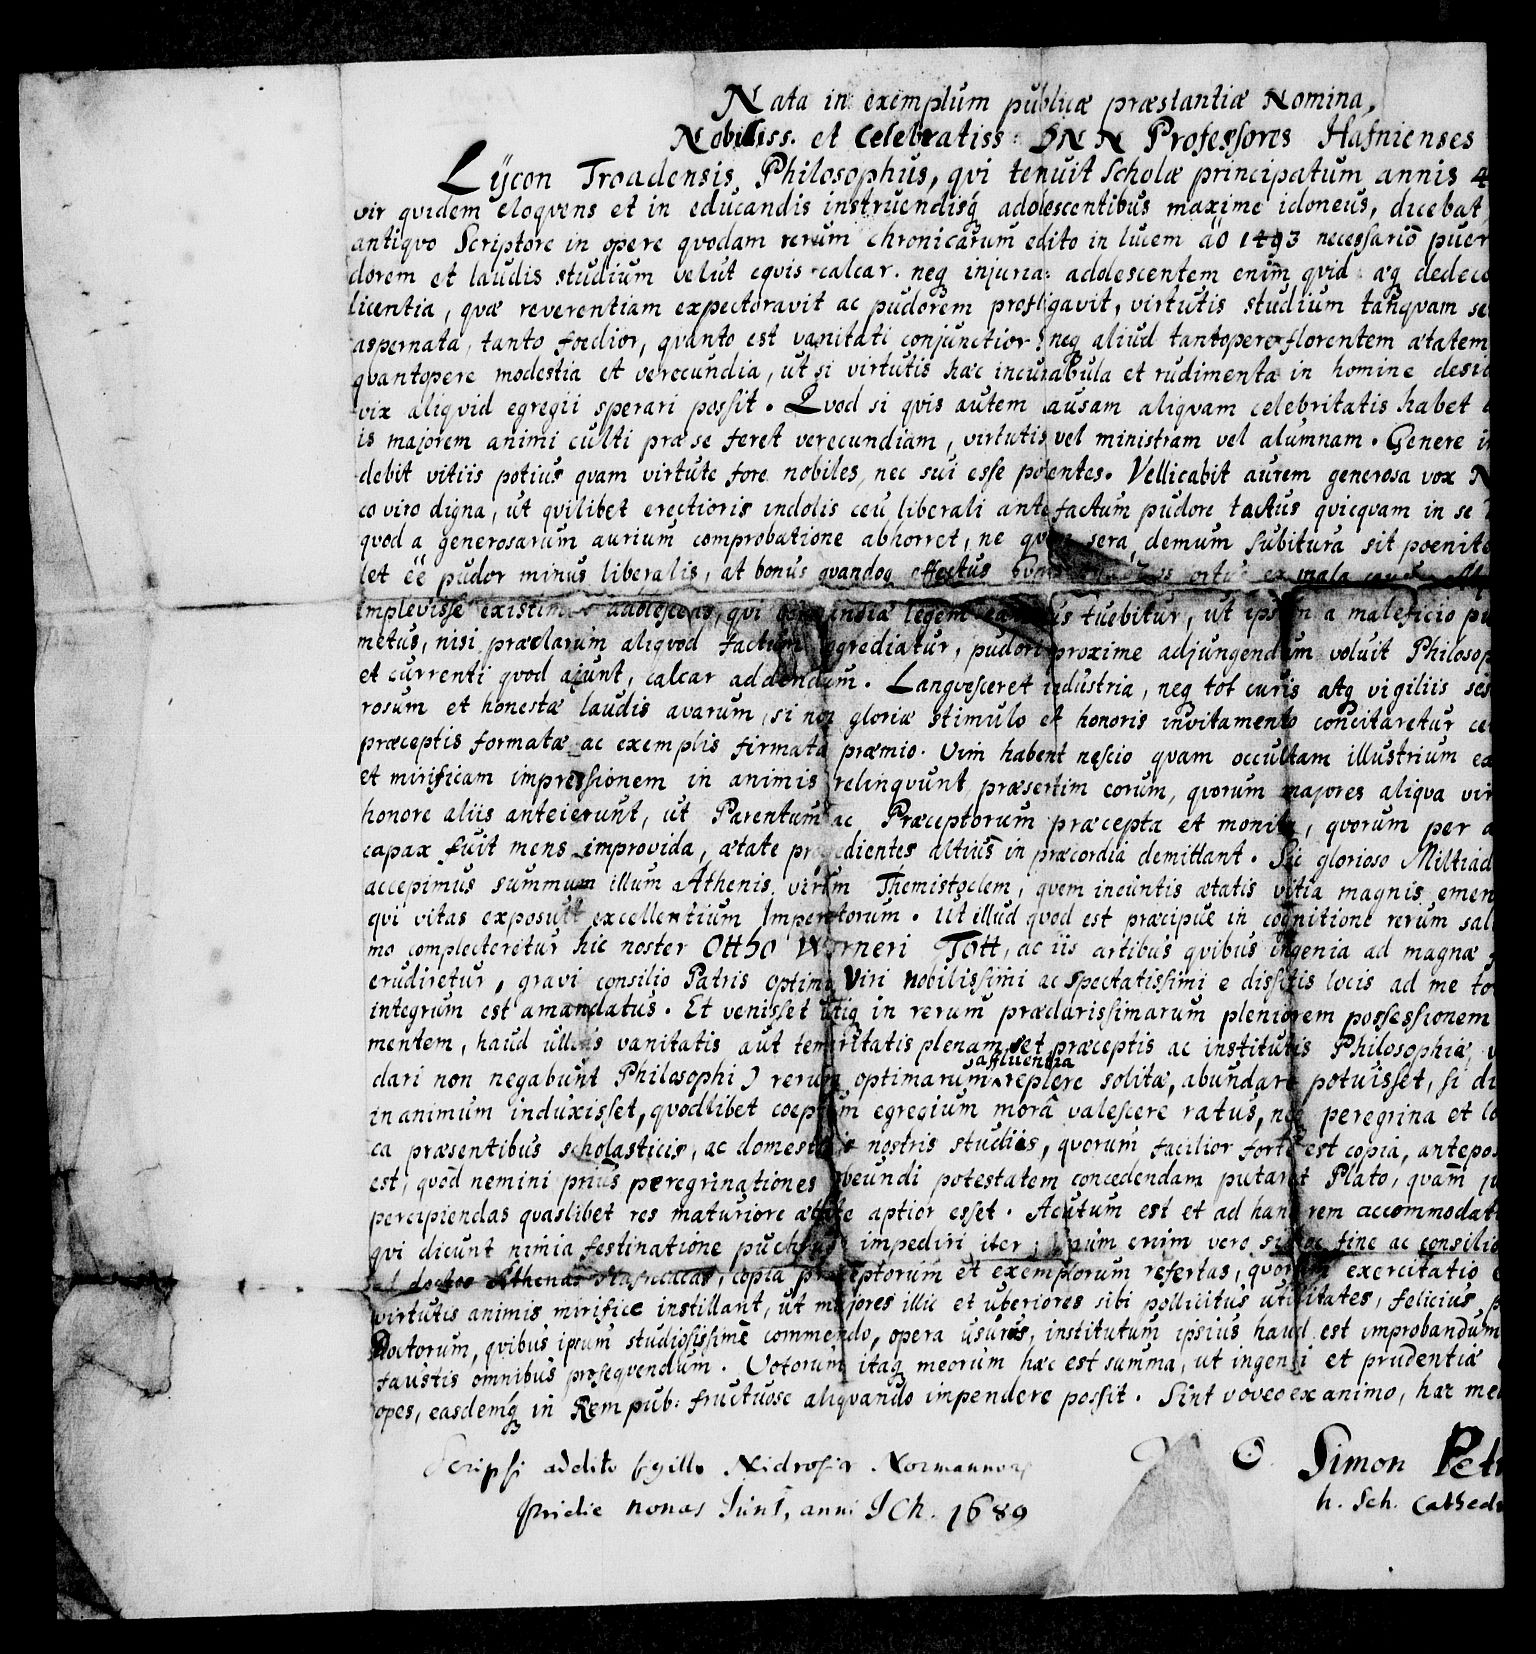 Nata in exemplum publicæ præstantiæ Nomina,
Nobiliss. et Celebratiss: DNN Professores Hafnienses
Lÿcon Troadensis, Philosophus, qvi tenuit Scholæ principatum annis 4
vir qvidem eloqvens et in educandis instruendisq; adolescentibus maxime idoneus, dicebat,
antiqvo Scriptore in opere qvodam rerum chronicarum edito in lucem ao 1493 necessario puer
dorem et laudis studium velut eqvis calcar. neq injuria: adolescentem enim qvid æq dedeco
licentia, qvæ reverentiam expectoravit ac pudorem profligavit, virtutis studium tanqvam se
aspernata, tanto foedior, qvanto est vanitati conjunctior: neq aliud tantopere florentem ætatem
qvantopere modestia et verecundia, ut si virtutis hæc incunabula et rudimenta in homine desid
vix aliqvid egregii sperari possit. Qvod si qvis autem causam aliqvam celebritatis habet
is majorem animi culti præ se feret verecundiam, virtutis vel ministram vel alumnam. Genere in
debit vitiis potius qvam virtute fore nobiles, nec sui esse potentes. Vellicabit aurem generosa vox N
co viro digna, ut qvilibet erectioris indolis ceu liberali ante factum pudore tactus qvicqvam in se
qvod a generosarum aurium comprobatione abhorret, ne sera demum subitura sit poenite
let ee pudor minus liberalis, at bonus qvandoq effectus ortus ex mala
implevisse adolescens, qvi legem tuebitur, ut ipsum a maleficio pu
metus, nisi præclarum aliqvod factum aggrediatur, pudori proxime adjungendum voluit Philosop
et currenti qvod ajunt, calcar addendum. Langvesceret industria, neq tot curis atq vigiliis ses
rosum et honestæ laudis avarum, si non gloriæ stimulo et honoris invitamento concitaretur ce
præceptis formatæ ac exemplis firmatæ præmio. Vim habent nescio qvam occultam illustrium ea
et mirificam impressionem in animis relinqvunt, præsertim eorum, qvorum majores aliqva vir
honore aliis anteierunt, ut Parentum ac Præceptorum præcepta et monita, qvorum per a
capax fuit mens improvida, ætate progredientes altius in præcordia demittant. Sic glorioso Miltiad
accepimus summum illum Athenis virum Themistoclem, qvem ineuntis ætatis vitia magnis emen
qvi vitas exposuit excellentium Imperatorum. Ut illud qvod est præcipue in cognitione rerum sal
mo complecteretur hic noster Otto Werneri Tott, ac iis artibus qvibus ingenia ad magnæ
erudiretur, gravi consilio Patris optimi Viri nobilissimi ac spectatissimi e dissitis locis ad me to
integrum est amandatus. Et venisset utiq in rerum præclarissimarum pleniorem possessionem
mentem, haud ullius vanitatis aut temeritatis plenam, set præceptis ac institutis Philosophiæ,
dari non negabunt Philosophi) rerum optimarum affluentia replere solitæ, abundare potuisset, si di
in animum induxisset, qvodlibet coeptum egregium morâ valescere ratus, nec peregrina et lo
ca præsentibus scholasticis, ac domesticis nostris studiis, qvorum facilior forte est copia, antepos
est, qvod nemini prius peregrinationes obeundi potestatem concedendam putaret Plato, qvam
percipiendas qvaslibet res maturiore ætate aptior esset. Acutum est et ad hanc rem accommodat
qvi dicunt nimia festinatione pulchrum impediri iter; Ipsum enim vero si hoc fine ac consilio
ad doctas Athenas Hafniacas, copia præceptorum et exemplorum refertas, qvorum exercitatio
virtutis animis mirifice instillant, ut majores illic et uberiores sibi pollicitus utilitates, felicius
Doctorum, qvibus ipsum studiosissime commendo, opera usurus, institutum ipsius haud est improbandum
faustis omnibus proseqvendum. Votorum itaq meorum hæc est summa, ut ingenii et prudentiæ
opes, easdemq; in Rempub: fructuose aliqvando impendere possit. Sint voveo ex animo, hac me
Scripsi addito sigillo Nidrosiæ Normannor
Pridie nonas Juni, anni ICh. 1689
Simon Pet
h. Sch. Cathed